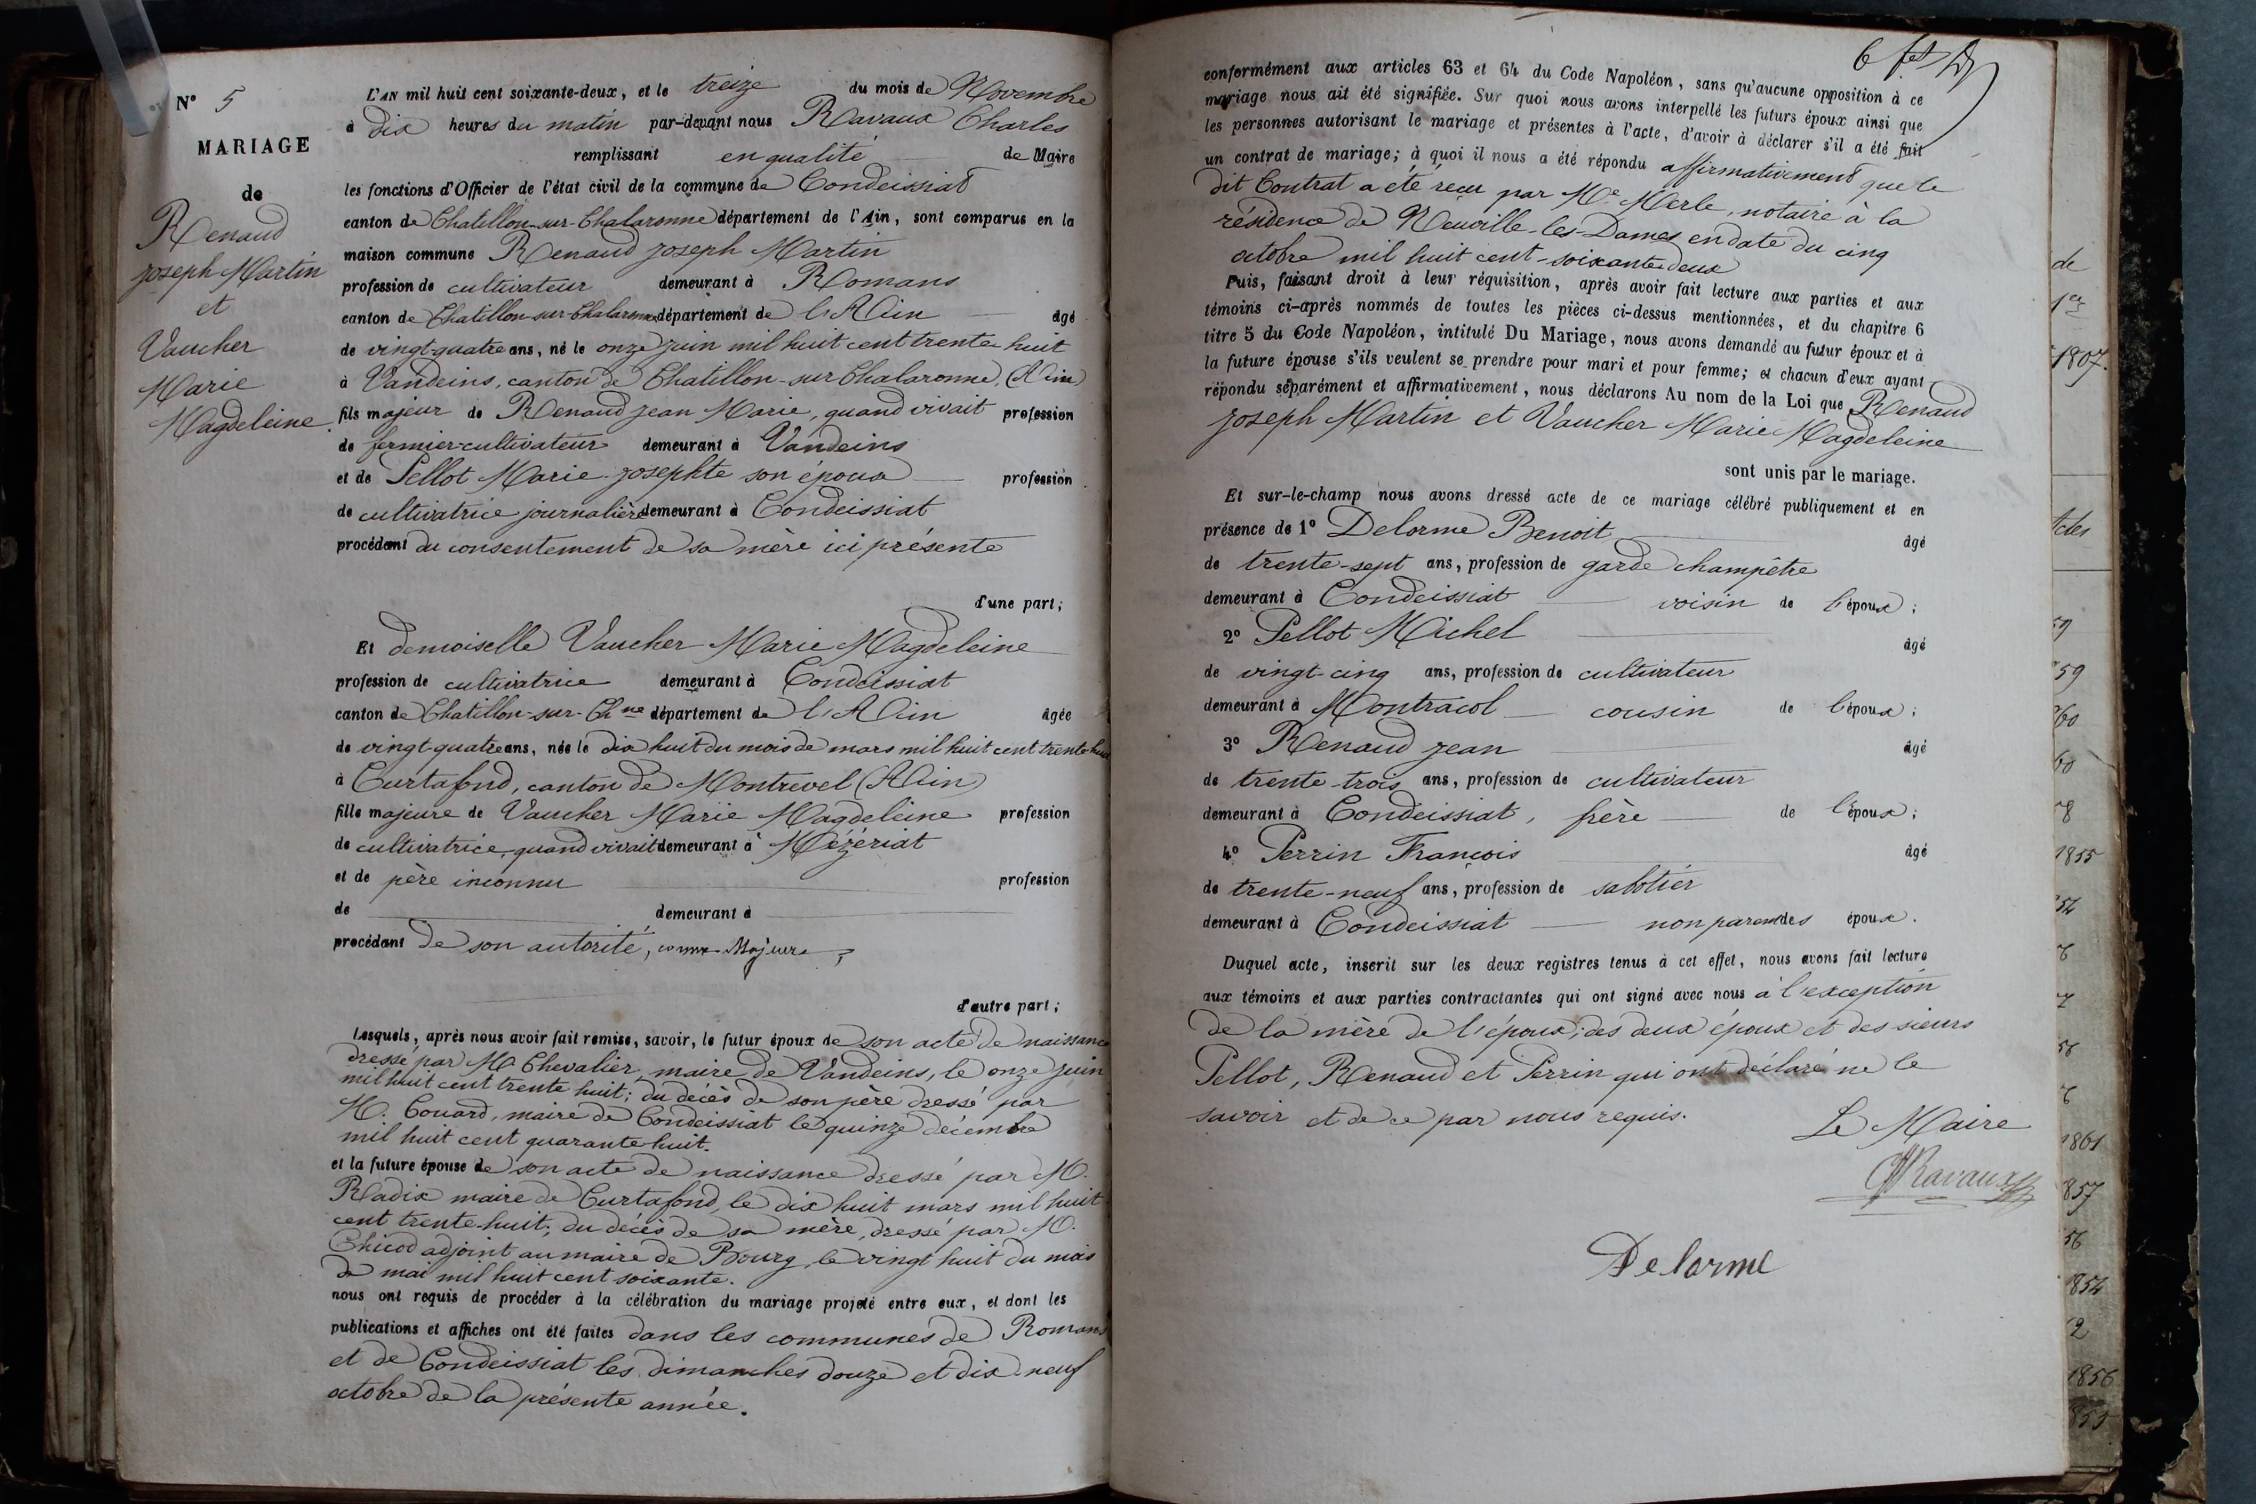 N° 5
MARIAGE
de
Renaud
Joseph Martin
et
Vaucher
Marie
Magdeleine.
L'AN mil huit cent soixante-deux, et le treize du mois de Novembre
à dix heures du matin par-devant nous Ravaux Charles
remplissant en qualité de Maire
les fonctions d'Officier de l'état civil de la commune de Condeissiat
canton de Chatillon-sur-Chalaronne département de l'Ain, sont comparus en la
maison commune Renaud Joseph Martin
profession de cultivateur demeurant à Romans
canton de Chatillon-sur-Chalaronne département de l'Ain âgé
de vingt-quatre ans, né le onze juin mil huit cent trente huit
à Vandeins, canton de Chatillon-sur-Chalaronne, (Ain)
fils majeur de Renaud Jean Marie, quand vivait profession
de fermier-cultivateur demeurant à Vandeins
et de Pellot Marie Josephte son épouse profession
de cultivatrice journalière demeurant à Condeissiat
procédant du consentement de sa mère ici présente
d'une part;
Et demoiselle Vaucher Marie Magdeleine
profession de cultivatrice demeurant à Condeissiat
canton de Chatillon-sur-Chne département de l'Ain âgée
de vingt-quatre ans, née le dix huit du mois de mars mil huit cent trente huit
à Curtafond, canton de Montrevel (Ain)
fille majeure de Vaucher Marie Magdeleine profession
de cultivatrice, quand vivait demeurant à Mézériat
et de père inconnu profession
de demeurant à
procédant de son autorité, comme Majeure,
d'autre part;
Lesquels, après nous avoir fait remise, savoir, le futur époux de son acte de naissance
dressé par Mr Chevalier, maire de Vandeins, le onze juin
mil huit cent trente huit; du décès de son père dressé par
M. Couard, maire de Condeissiat le quinze décembre
mil huit cent quarante-huit.
et la future épouse de son acte de naissance dressé par M.
Radix maire de Curtafond, le dix huit mars mil huit
cent trente-huit; du décès de sa mère, dressé par M.
Chicod adjoint au maire de Bourg, le vingt huit du mois
de mai mil huit cent soixante.
nous ont requis de procéder à la célébration du mariage projeté entre eux, et dont les
publications et affiches ont été faites dans les communes de Romans
et de Condeissiat les dimanches douze et dix-neuf
octobre de la présente année.
conformément aux articles 63 et 64 du Code Napoléon, sans qu'aucune opposition à ce
mariage nous ait été signifiée. Sur quoi nous avons interpellé les futurs époux ainsi que
les personnes autorisant le mariage et présentes à l'acte, d'avoir à déclarer s'il a été fait
un contrat de mariage; à quoi il nous a été répondu affirmativement que le
dit Contrat a été reçu par Me Merle, notaire à la
résidence de Neuville-les-Dames en date du cinq
octobre mil huit cent-soixante deux
Puis, faisant droit à leur réquisition, après avoir fait lecture aux parties et aux
témoins ci-après nommés de toutes les pièces ci-dessus mentionnées, et du chapitre 6
titre 5 du Code Napoléon, intitulé Du Mariage, nous avons demandé au futur époux et à
la future épouse s'ils veulent se prendre pour mari et pour femme; et chacun d'eux ayant
répondu séparément et affirmativement, nous déclarons Au nom de la Loi que Renaud
Joseph Martin et Vaucher Marie Magdeleine
sont unis par le mariage.
Et sur-le-champ nous avons dressé acte de ce mariage célébré publiquement et en
présence de 1° Delorme Benoit âgé
de trente-sept ans, profession de garde champêtre
demeurant à Condeissiat voisin de l'époux;
2° Pellot Michel âgé
de vingt-cinq ans, profession de cultivateur
demeurant à Montracol cousin de l'époux;
3° Renaud Jean âgé
de trente-trois ans, profession de cultivateur
demeurant à Condeissiat, frère de l'époux;
4° Perrin François âgé
de trente-neuf ans, profession de sabotier
demeurant à Condeissiat non parent des époux.
Duquel acte, inscrit sur les deux registres tenus à cet effet, nous avons fait lecture
aux témoins et aux parties contractantes qui ont signé avec nous à l'exception
de la mère de l'époux, des deux époux et des sieurs
Pellot, Renaud et Perrin qui ont déclaré ne le
savoir et de ce par nous requis.
Le Maire
Ravaux
Delorme
de
1er
1807.
59
60
60
1855
1861
1857
56
1854
2
1856